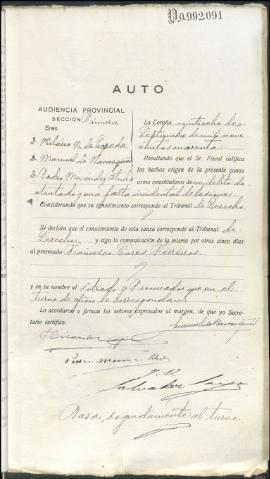 No.992.091
AUTO
AUDIENCIA PROVINCIAL
SECCIÓN Primera
Sres.
D. Manuel
D. Pedro
La Coruña veintiocho de
Septiembre de mil nove
cientos cuarenta
Resultando que el Sr. Fiscal calificó
los hechos origen de la presente causa
como constitutivos de un delito de
atentado y una falta incidental de lesiones
Considerando que su conocimiento corresponde al Tribunal de Derecho
Se declara que el conocimiento de esta causa corresponde al Tribunal de
Derecho y siga la comunicación de la misma por otros cinco días
al procesado Francisco
y en su nombre al Letrado y Procurador que en el
turno de oficio le correspondan
Lo acordaron y firman los señores expresados al margen, de que yo Secretario
certifico.
P. H.
Salvador
Pasa seguidamente al turno